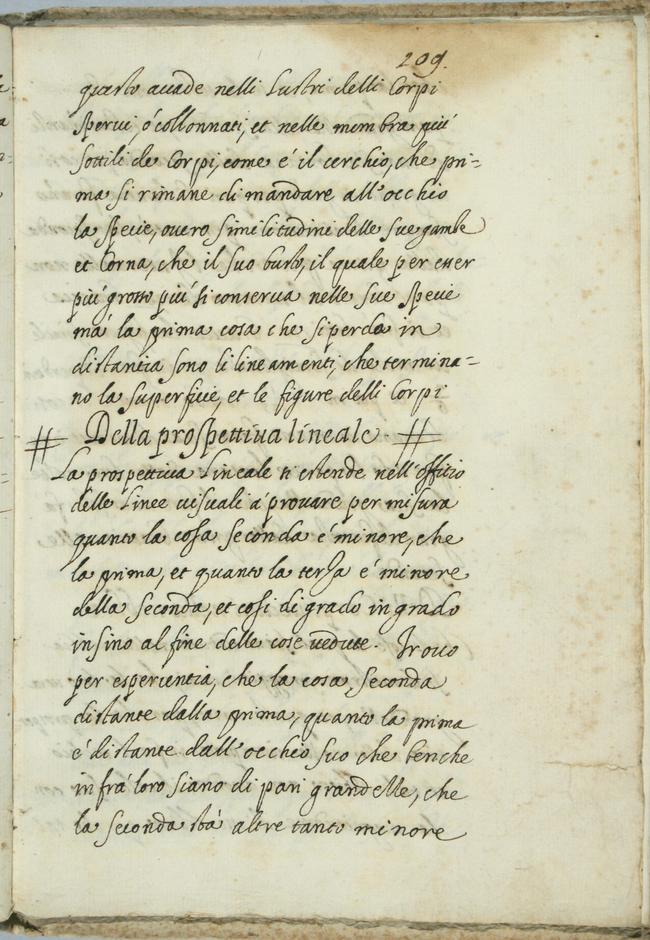 209.
questo accade nelli Lustri delli Corpi
sperici, ó collonnati, et nelle membra piú
sottili de Corpi, come é il cerchio, che pri=
ma si rimane di mandare all'occhio
la specie, overo similitudini delle sue gambe
et Corna, che il suo busto, il quale per esser
piú grosso piú si conserva nelle sue specie
má la prima cosa che si perda in
distantia sono li lineamenti, che termina=
no la superficie, et le figure delli Corpi
# Della prospettiva lineale. #
La prospettiva Lineale si estende nell'offitio
delle Linee visuali á provare per misura
quanto la cosa seconda é minore, che
la prima, et quanto la terza é minore
della seconda, et cosi di grado in grado
insino al fine delle cose vedute. Trovo
per esperientia, che la cosa seconda
distante dalla prima, quanto la prima
é distante dall'occhio suo che benche
infrá loro siano di pari grandelle, che
la seconda stá altre tanto minore